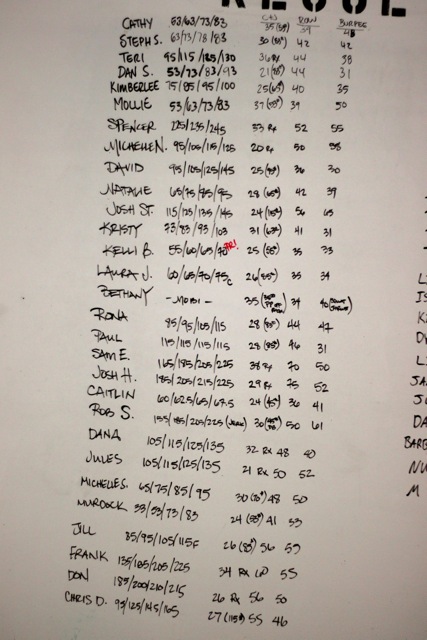 C&J ROW BURPEE
CATHY 53/63/73/83 35(35#) 39 48
STEPH S. 63/73/78/83 30(55#) 42 42
TERI 95/115/125/130 36 RX 44 38
DAN S. 53/73/83/93 21(55#) 44 31
KIMBERLEE 75/85/95/100 25(65#) 40 35
MOLLIE 53/63/73/83 37(55#) 39 50
SPENCER 225/235/245 33 RX 52 55
MICHELLE N. 95/105/115/125 20 RX 50 58
DAVID 95/105/125/145 25 36 30
NATALIE 65/75/85/95 28(65#) 42 39
JOSH ST. 115/125/135/145 24(115#) 56 65
KRISTY 73/83/93/103 31(63#) 41 31
KELLI B. 55/60/65/70 PR! 25(55#) 35 33
LAURA J. 60/65/70/75 26(55#) 35 34
BETHANY -MOBI- 35 34 40
RONA 85/95/105/115 28(85#) 44 47
PAUL 115/115/115/115 28(85#) 46 31
SAM E. 165/185/205/225 38 RX 70 50
JOSH H. 185/205/215/225 29 RX 75 52
CAITLIN 60/62.5/65/67.5 24(45#) 36 41
ROB S. 155/185/205/225 30 50 61
DANA 105/115/125/135 32 RX 48 40
JULES 105/115/125/135 21 RX 50 52
MICHELLE S. 65/75/85/95 30(75#) 48 50
MURDOCK 53/53/73/83 24(53#) 41 53
JILL 85/95/105/115F 26(85#) 56 55
FRANK 135/165/205/225 34 RX 60 55
DON 185/200/210/215 26 RX 56 50
CHRIS D. 95/125/145/165 27(115#) 55 46
L
K
L
DA
BARB
NU
M